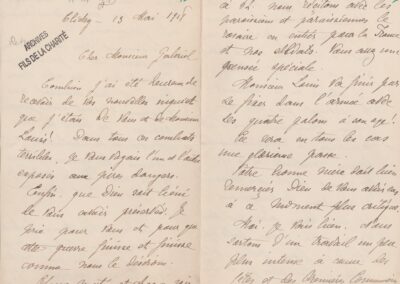 Clichy - 13 Mai 1918
ARCHIVES
FILS DE LA CHARITÉ
Cher Monsieur Gabriel
Combien j'ai été heureux de
recevoir de vos nouvelles inquiet
que j'étais de vous et de Monsieur
Louis! Dans tous ces combats
terribles, je vous voyais l'un et l'autre
exposés aux pires dangers.
Enfin, que Dieu soit béni
de vous avoir préservés. Je
prie pour vous et pour que
cette guerre finisse et finisse
comme nous le désirons.
à là nous récitons avec les
paroissiens et paroissiennes le
rosaire en entier pour la France
et nos soldats. Vous avez une
pensée spéciale.
Monsieur Louis va finir par
se fixer dans l'armée avec
les quatre galons à son âge!
Ce sera en tous les cas
une glorieuse passe.
Votre bonne mère doit bien
remercier Dieu de vous
à ce moment plus critique.
Moi, je vais bien, nous
sortons d'un travail un peu
plus intense à cause des
fêtes et des Premières Communions